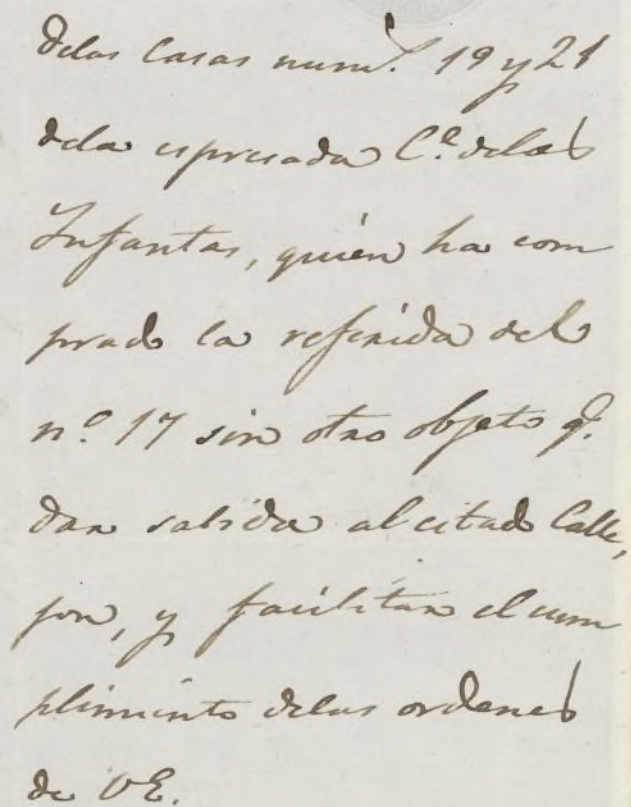 delas Casas num.s 19 y 21
dela espresada C.e delas
Infantas, quién ha com
prado la referida del
n.o 17 sin otro objeto q.e
dar salida al citado Calle,
jon, y facilitar el cum
plimiento delas ordenes
de VE.